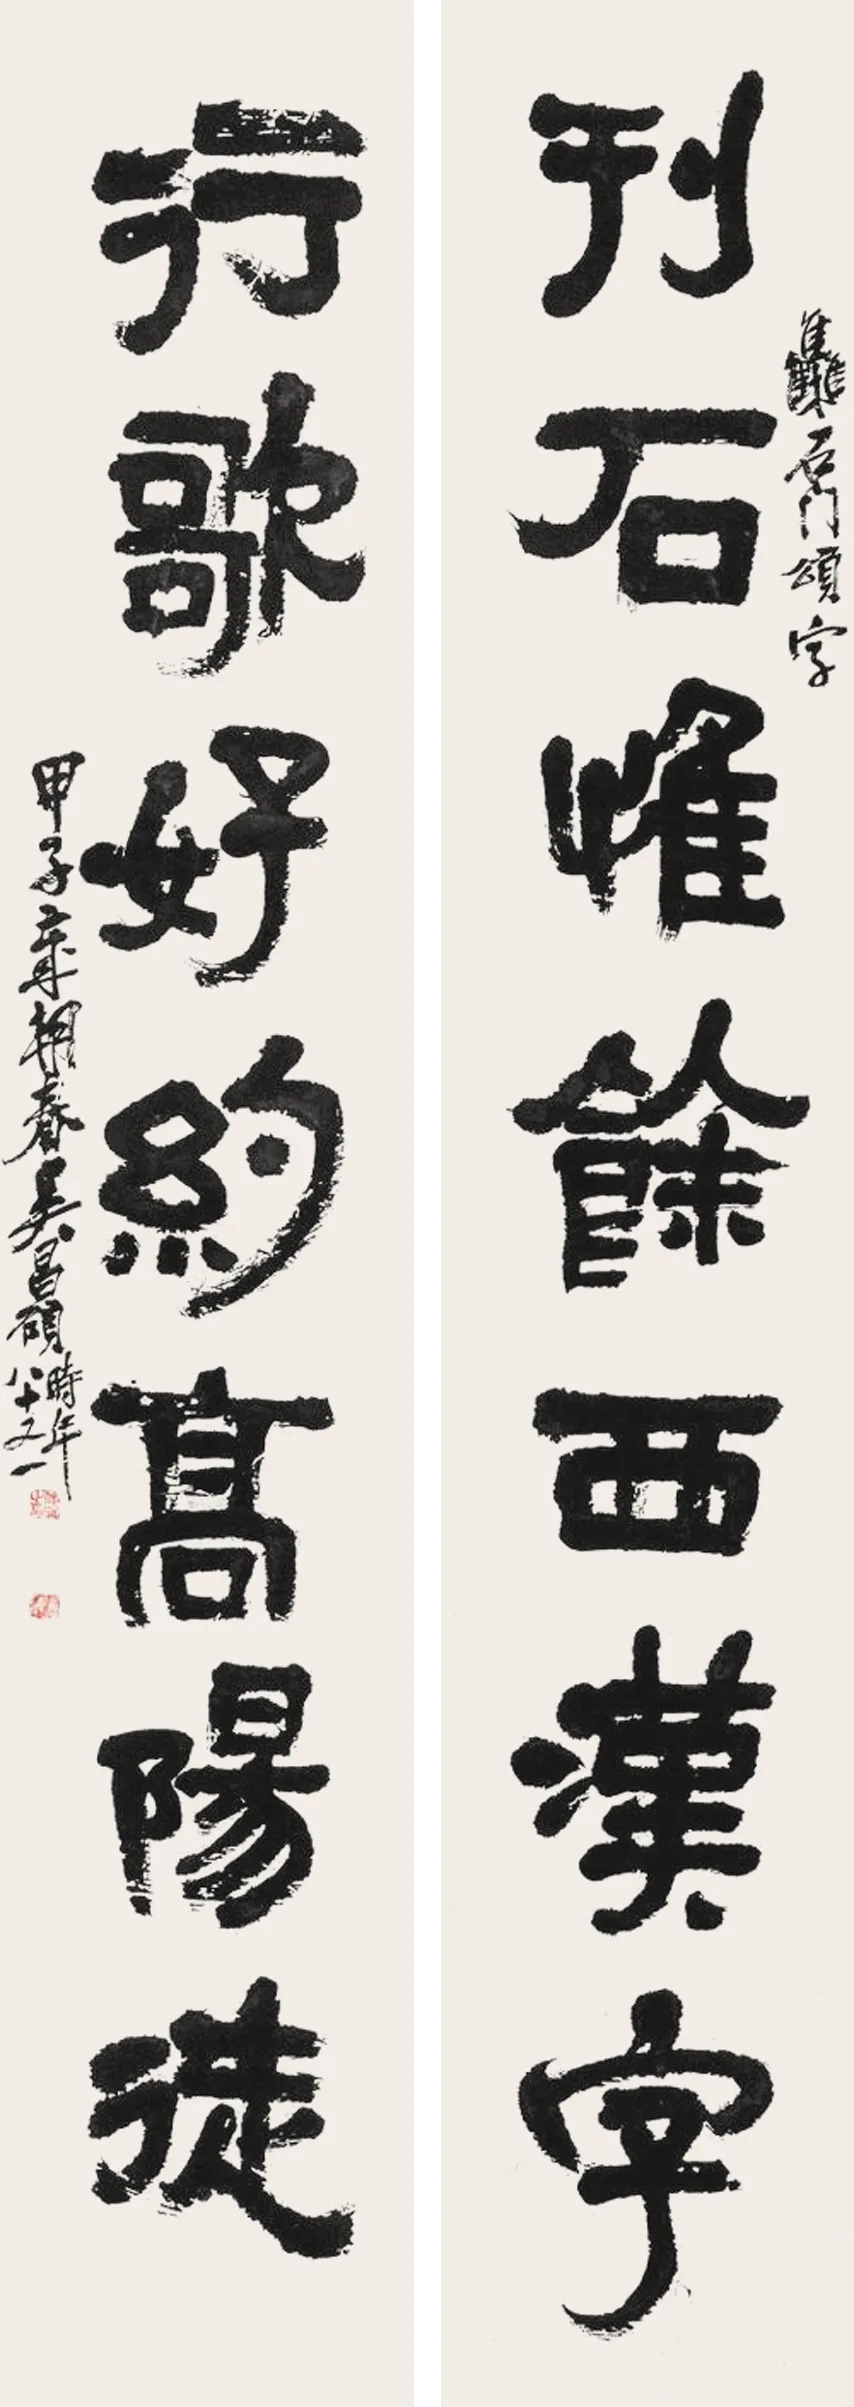 雧石門頌字
刊石惟餘西漢字
行歌好約髙陽徒
甲子歲朝春吳昌碩時年八十又一